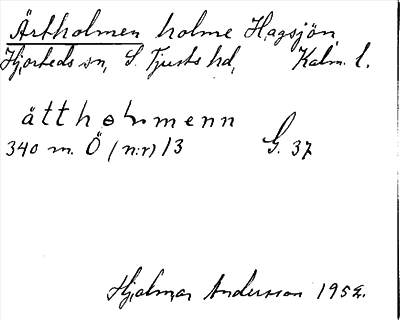 Ärtholmen holme Hagsjön,
Hjorteds sn, S. Tjusts hd, Kalm. l.
ättholmenn
340 m. Ö (n:r) 13 G. 37
Hjalmar Andersson 1952.